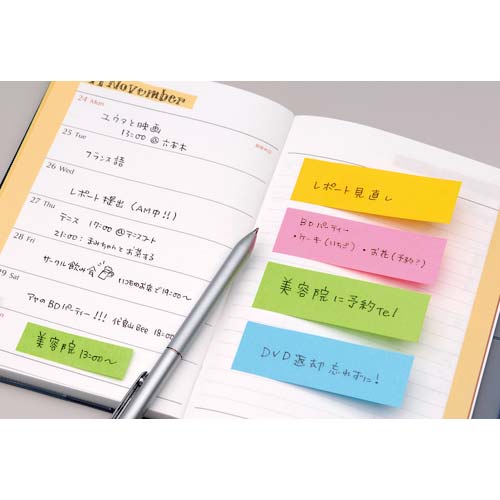 11 November
24 Mon
ユウマと映画
13:00 @ 六本木
25 Tue
フランス語
26 Wed
レポート提出 (AM中!!)
27 Thu
テニス 17:00 @テニスコート
21:00: まみちゃんとお茶する
28 Fri
サークル飲み会 いつものお店で19:00〜
29 Sat
アヤのBDパーティー!!! 代官山Bee 18:00
美容院 13:00〜
レポート見直し
BDパーティー
・ケーキ(いちご) ・お花(予約?)
美容院に予約Tel
DVD返却忘れずに!